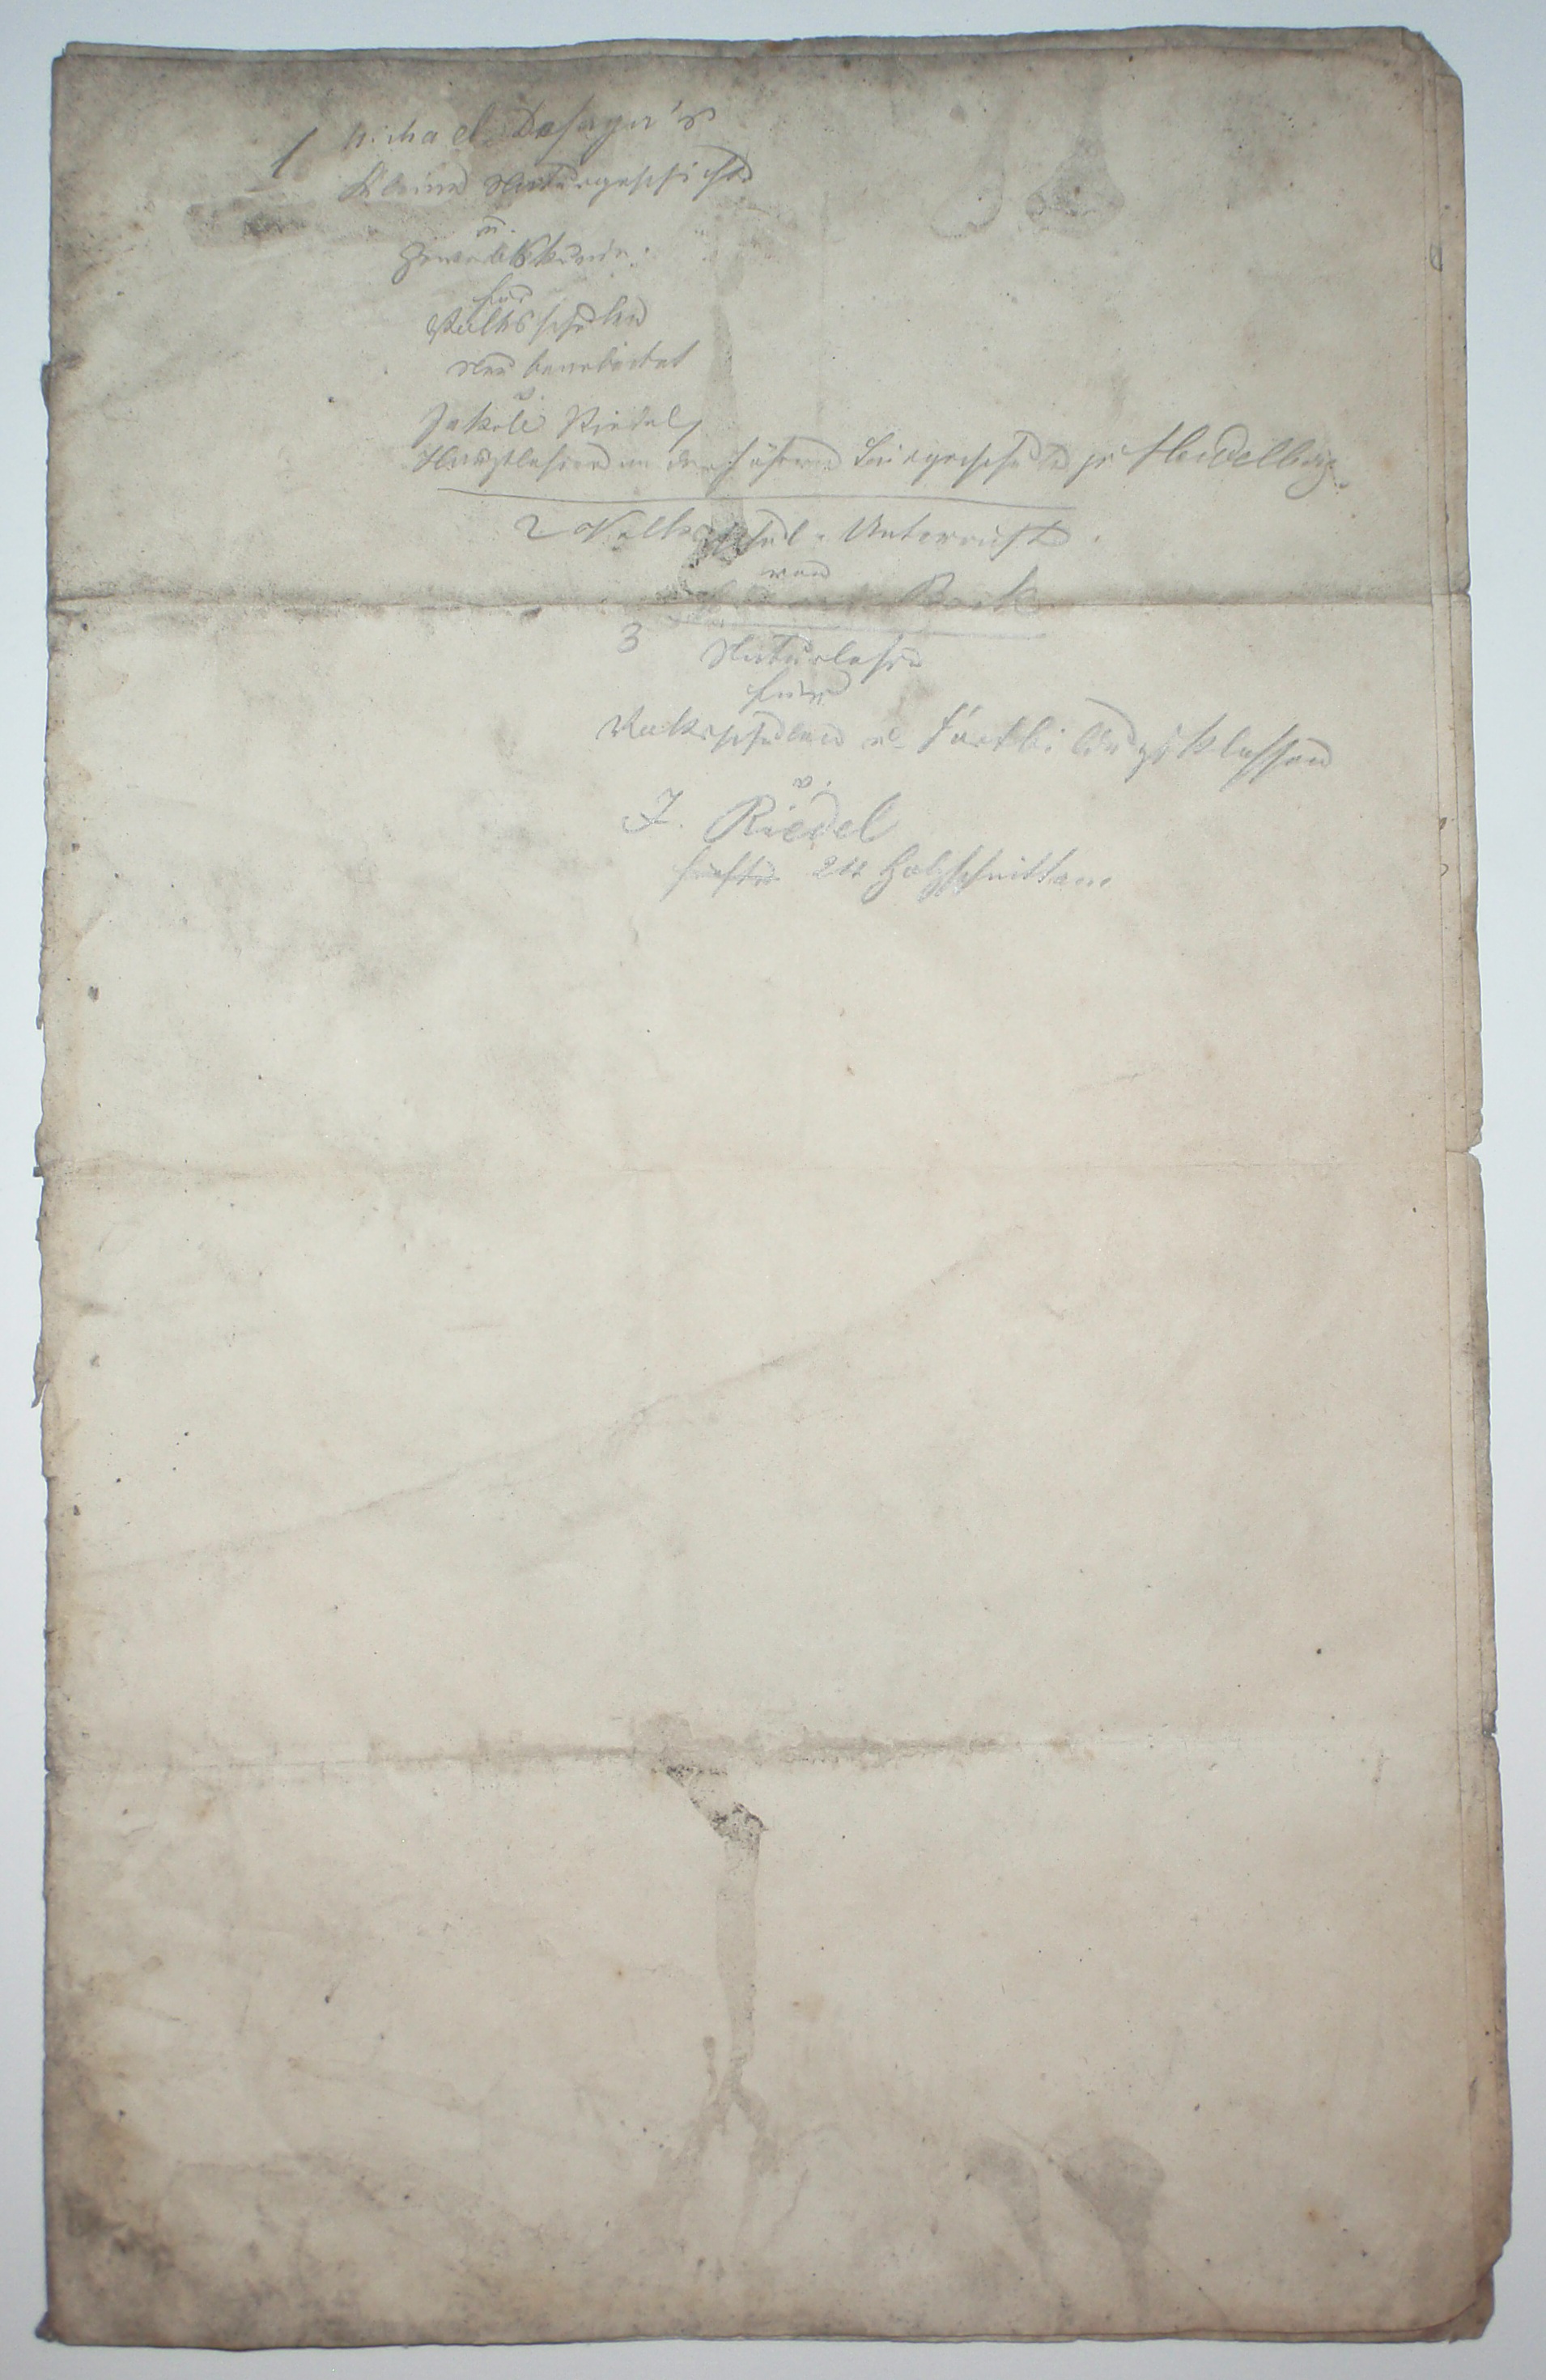 1 Michael Desaga's
kleine Naturgeschichte
u.
Gewerbskunde
für
Volksschulen
Neu bearbeitet
v.
Jakob Riedel,
Hauptlehrer an der höhern Bürgerschule zu Heidelberg.
2 Volksschul-Unterricht.
von
Bock
3
Naturlehre
für
Volksschulen u. Fortbildungsklassen
v.
J. Riedel
214 Holzschnitten